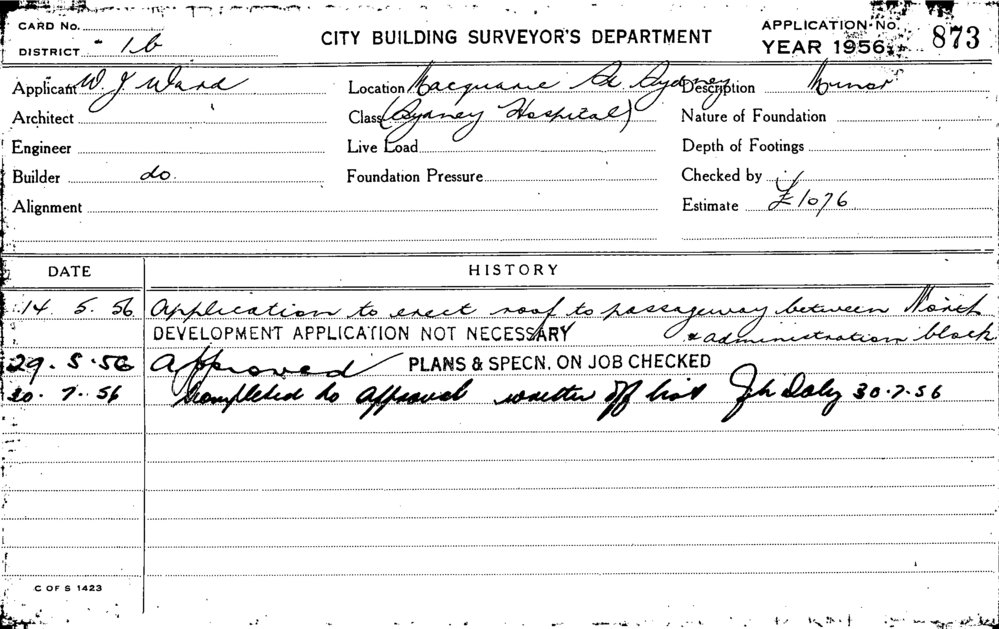 CARD No.
DISTRICT 1b
CITY BUILDING SURVEYOR'S DEPARTMENT
APPLICATION No. 873
YEAR 1956
Applicant W J Ward
Location Macquarie St Sydney
Description Minor
Architect
Class (Sydney Hospital)
Nature of Foundation
Engineer
Live Load
Depth of Footings
Builder do.
Foundation Pressure
Checked by
Alignment
Estimate £1076
DATE
HISTORY
14. 5. 56 Application to erect roof to passageway between North
DEVELOPMENT APPLICATION NOT NECESSARY & administration block
29. 5. 56 Approved PLANS & SPECN. ON JOB CHECKED
30. 7. 56 Completed to approval written off list Daly 30.7.56
C OF S 1423